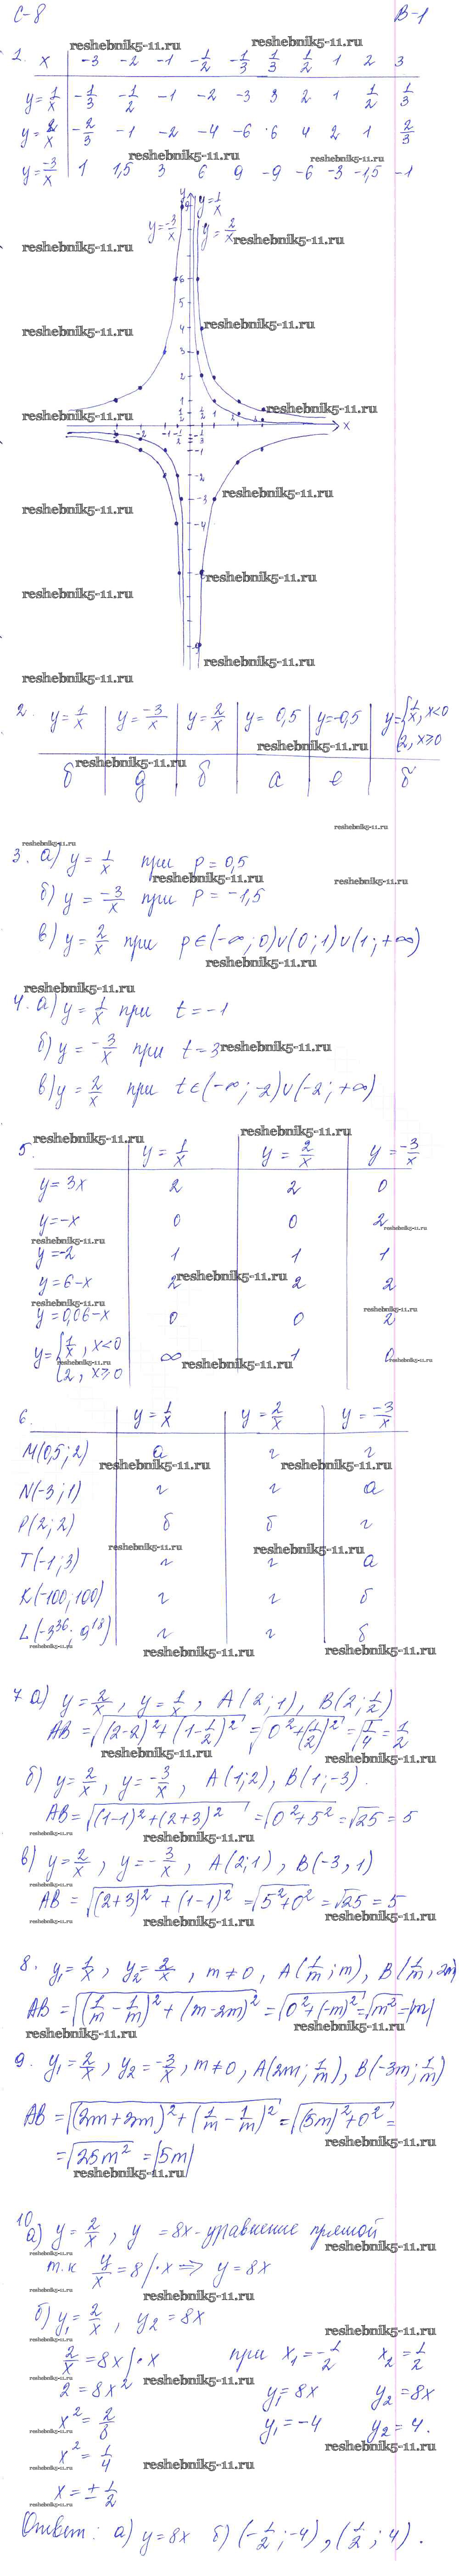 С-8 В-1
1. x -3 -2 -1 -1/2 -1/3 1/3 1/2 1 2 3
y=1/x -1/3 -1/2 -1 -2 -3 3 2 1 1/2 1/3
y=2/x -2/3 -1 -2 -4 -6 6 4 2 1 2/3
y=-3/x 1 1,5 3 6 9 -9 -6 -3 -1,5 -1
y=-3/x y=1/x
y=2/x
2. y=1/x y=-3/x y=2/x y=0,5 y=-0,5 y={1/x, x<0
2, x≥0
б д б а е б
3. а) y=1/x при p=0,5
б) y=-3/x при p=-1,5
в) y=2/x при p∈(-∞;0)∪(0;1)∪(1;+∞)
4. а) y=1/x при t=-1
б) y=-3/x при t=3
в) y=2/x при t∈(-∞;-2)∪(-2;+∞)
5. y=1/x y=2/x y=-3/x
y=3x 2 2 0
y=-x 0 0 2
y=-2 1 1 1
y=6-x 2 2 2
y=0,06-x 0 0 2
y={1/x, x<0 ∞ 1 0
2, x≥0
6. y=1/x y=2/x y=-3/x
M(0,5;2) а г г
N(-3;1) г г а
P(2;2) б б г
T(-1;3) г г а
K(-100;100) г г б
L(-3^36;9^18) г г б
7 а) y=2/x, y=1/x, A(2;1), B(2;1/2)
AB=√((2-2)²+(1-1/2)²)=√(0²+(1/2)²)=√(1/4)=1/2
б) y=2/x, y=-3/x, A(1;2), B(1;-3).
AB=√((1-1)²+(2+3)²)=√(0²+5²)=√25=5
в) y=2/x, y=-3/x, A(2;1), B(-3,1)
AB=√((2+3)²+(1-1)²)=√(5²+0²)=√25=5
8. y₁=1/x, y₂=2/x, m≠0, A(1/m;m), B(1/m;2m)
AB=√((1/m-1/m)²+(m-2m)²)=√(0²+(-m)²)=√m²=|m|
9. y₁=2/x, y₂=-3/x, m≠0, A(2m;1/m), B(-3m;1/m)
AB=√((2m+3m)²+(1/m-1/m)²)=√((5m)²+0²)=
=√25m²=|5m|
10
а) y=2/x, y=8x-уравнение прямой
т.к y/x=8|·x⇒ y=8x
б) y₁=2/x, y₂=8x
2/x=8x|·x при x₁=-1/2 x₂=1/2
2=8x² y₁=8x y₂=8x
x²=2/8 y₁=-4 y₂=4.
x²=1/4
x=±1/2
Ответ: а) y=8x б) (-1/2;-4), (1/2;4).
reshebnik5-11.ru